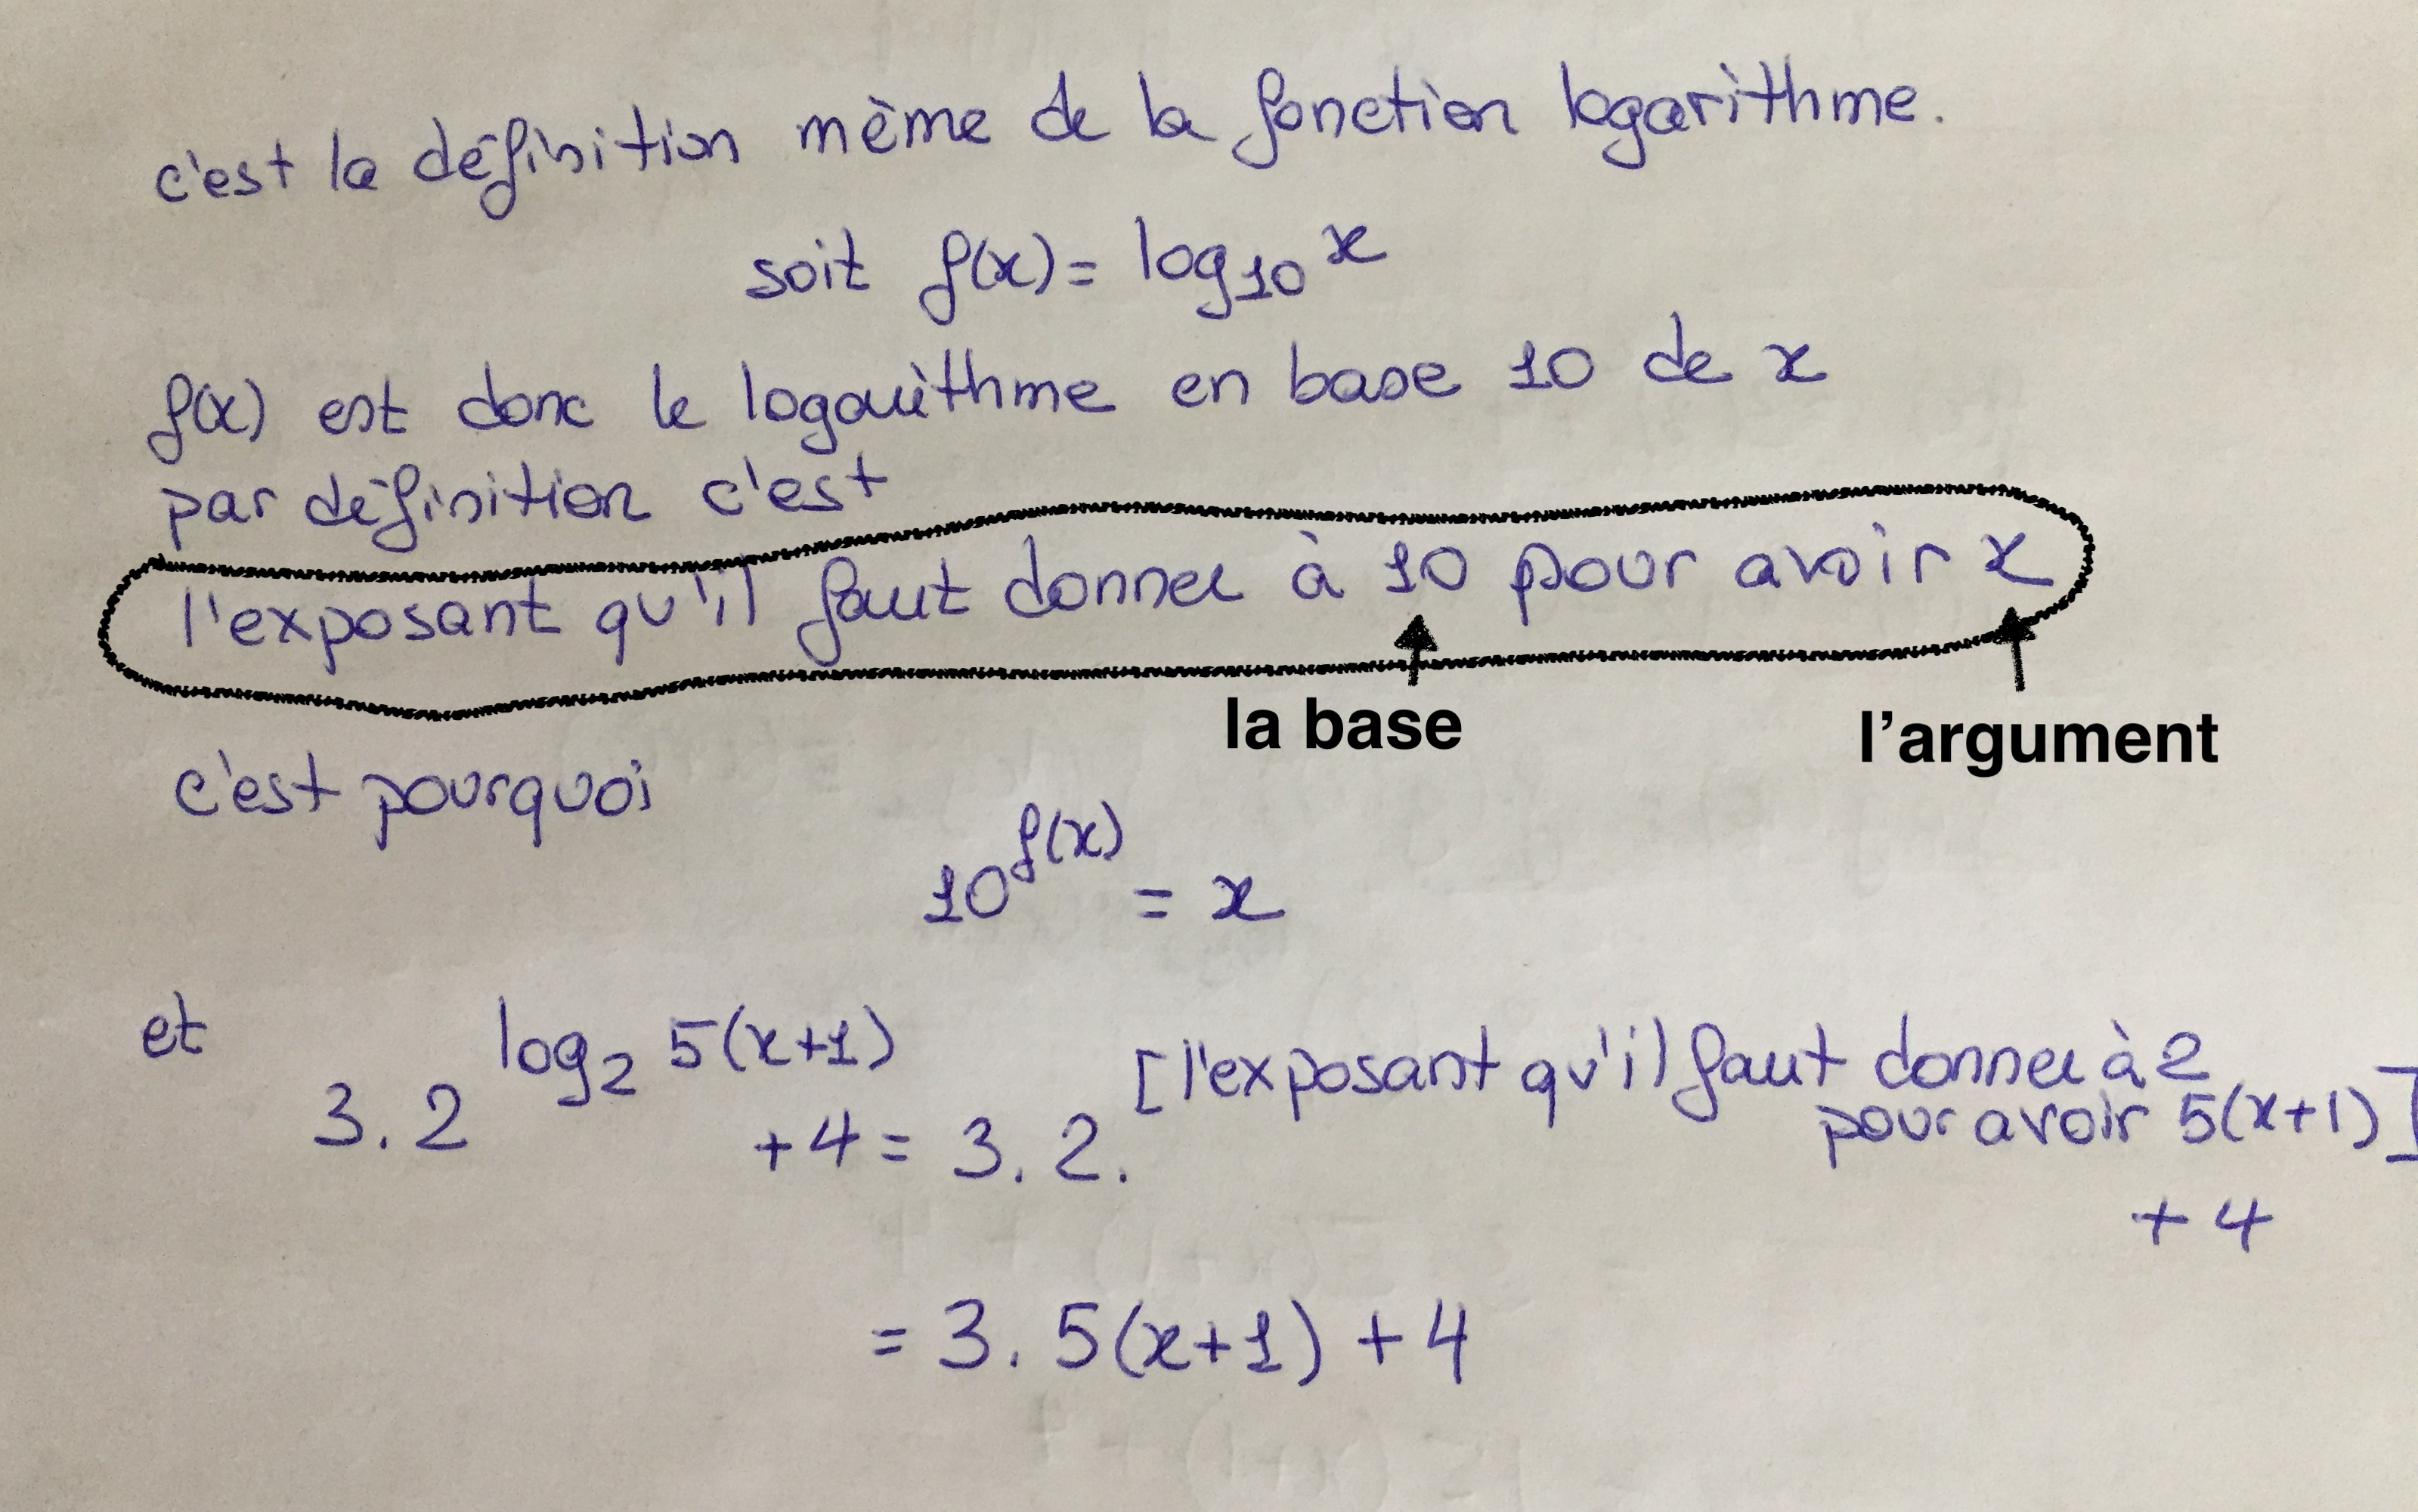 c'est la définition même de la fonction logarithme.
soit f(x) = log₁₀ x
f(x) est donc le logarithme en base 10 de x
par définition c'est
l'exposant qu'il faut donner à 10 pour avoir x
la base
l'argument
c'est pourquoi
10^f(x) = x
et 3.2^log₂ 5(x+1) + 4 = 3.2.^[l'exposant qu'il faut donner à 2
pour avoir 5(x+1)]
+ 4
= 3. 5(x+1) + 4